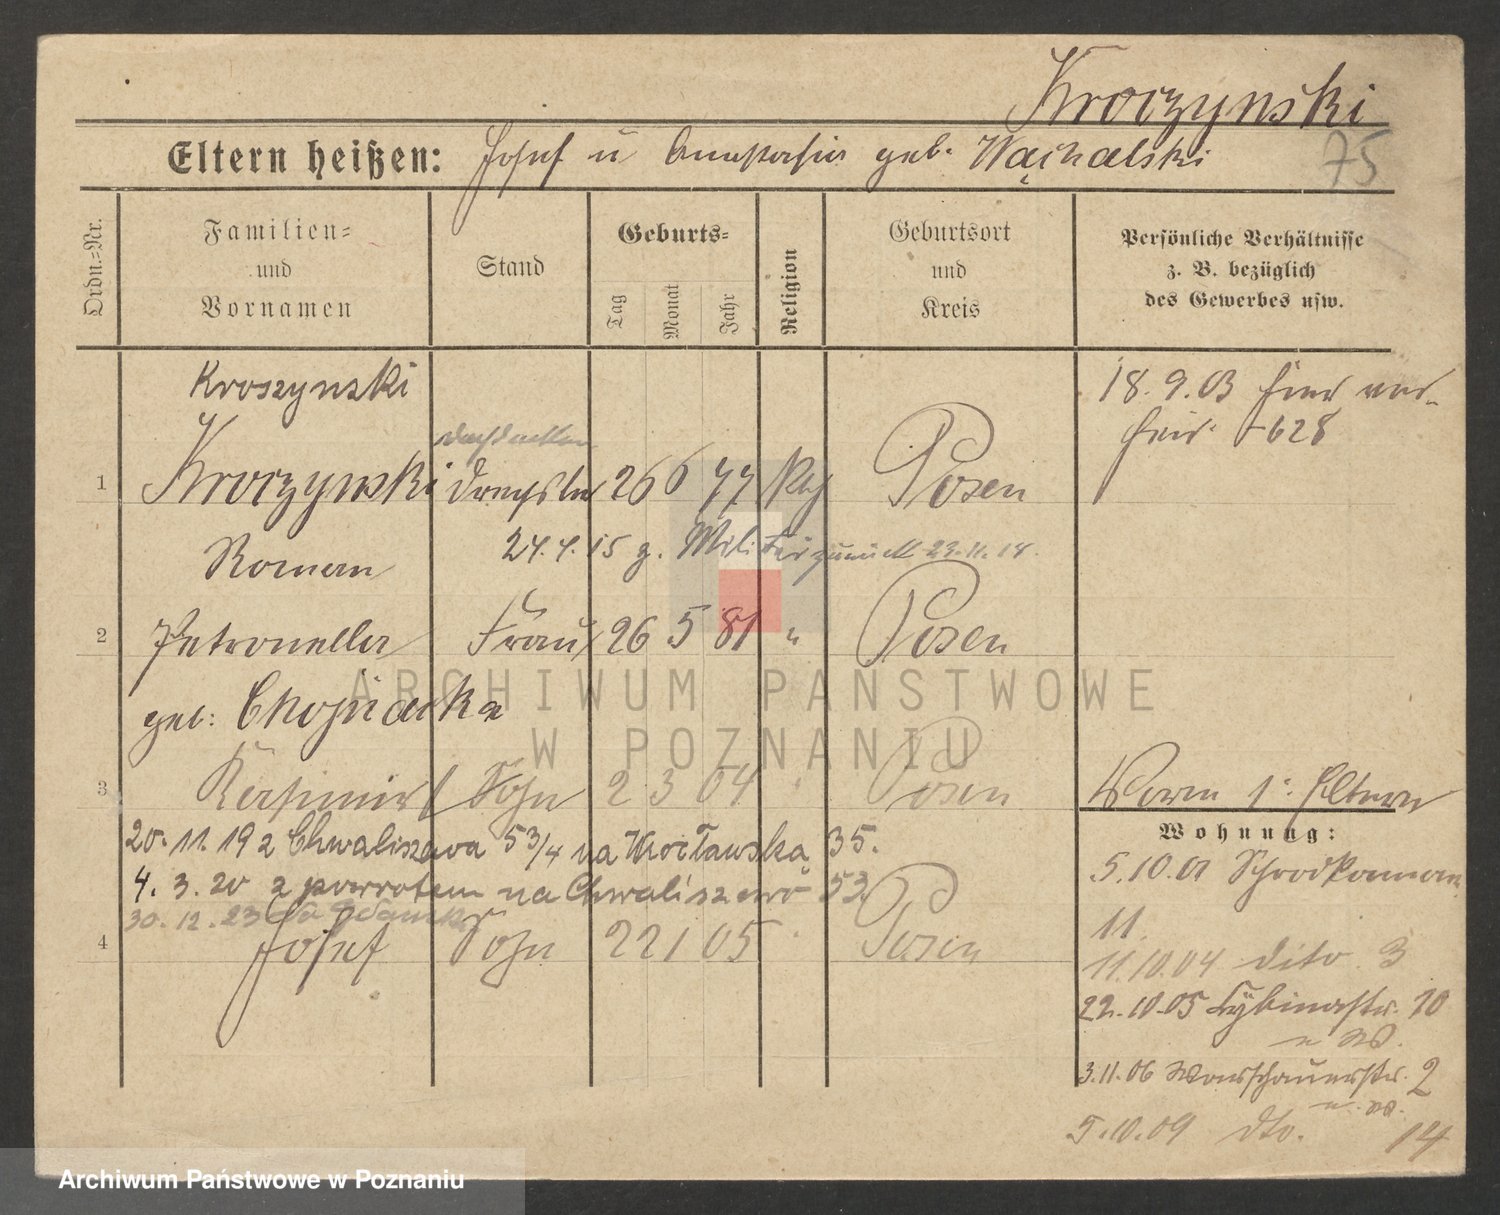 Kroczynski
Eltern heißen: Josef u Anastasia geb. Wąchalski
75
Ordn.-Nr.
Familien-
und
Vornamen
Stand
Geburts-
Tag
Monat
Jahr
Religion
Geburtsort
und
Kreis
Persönliche Verhältnisse
z. B. bezüglich
des Gewerbes usw.
Kroszynski
18. 9. 03 hier ver-
heir. 628
Dachdecker
1 Kroczynski Drechsler 26 6 77 Kth Posen
Roman
24. 4. 15 z. Militär zurück 23. 11. 18.
2 Petronella Frau 26 5 81 " Posen
geb: Chojnacka
3 Kasimir Sohn 2 3 04 Posen
Worm s: Eltern
Wohnung:
20. 11. 19 z Chwaliszewa 53/4 na Wrocławską 35.
4. 3. 20 z powrotem na Chwaliszewo 53.
30. 12. 23 do Gdańska
4 Josef Sohn 22 1 05 Posen
5. 10. 01 Schrodkamarkt
11
11. 10. 04 dito 3
22. 10. 05 Cybinastr. 10
n. W.
3. 11. 06 Warschauerstr. 2
n. W.
5. 10. 09 dto. 14
ARCHIWUM PAŃSTWOWE
W POZNANIU
Archiwum Państwowe w Poznaniu